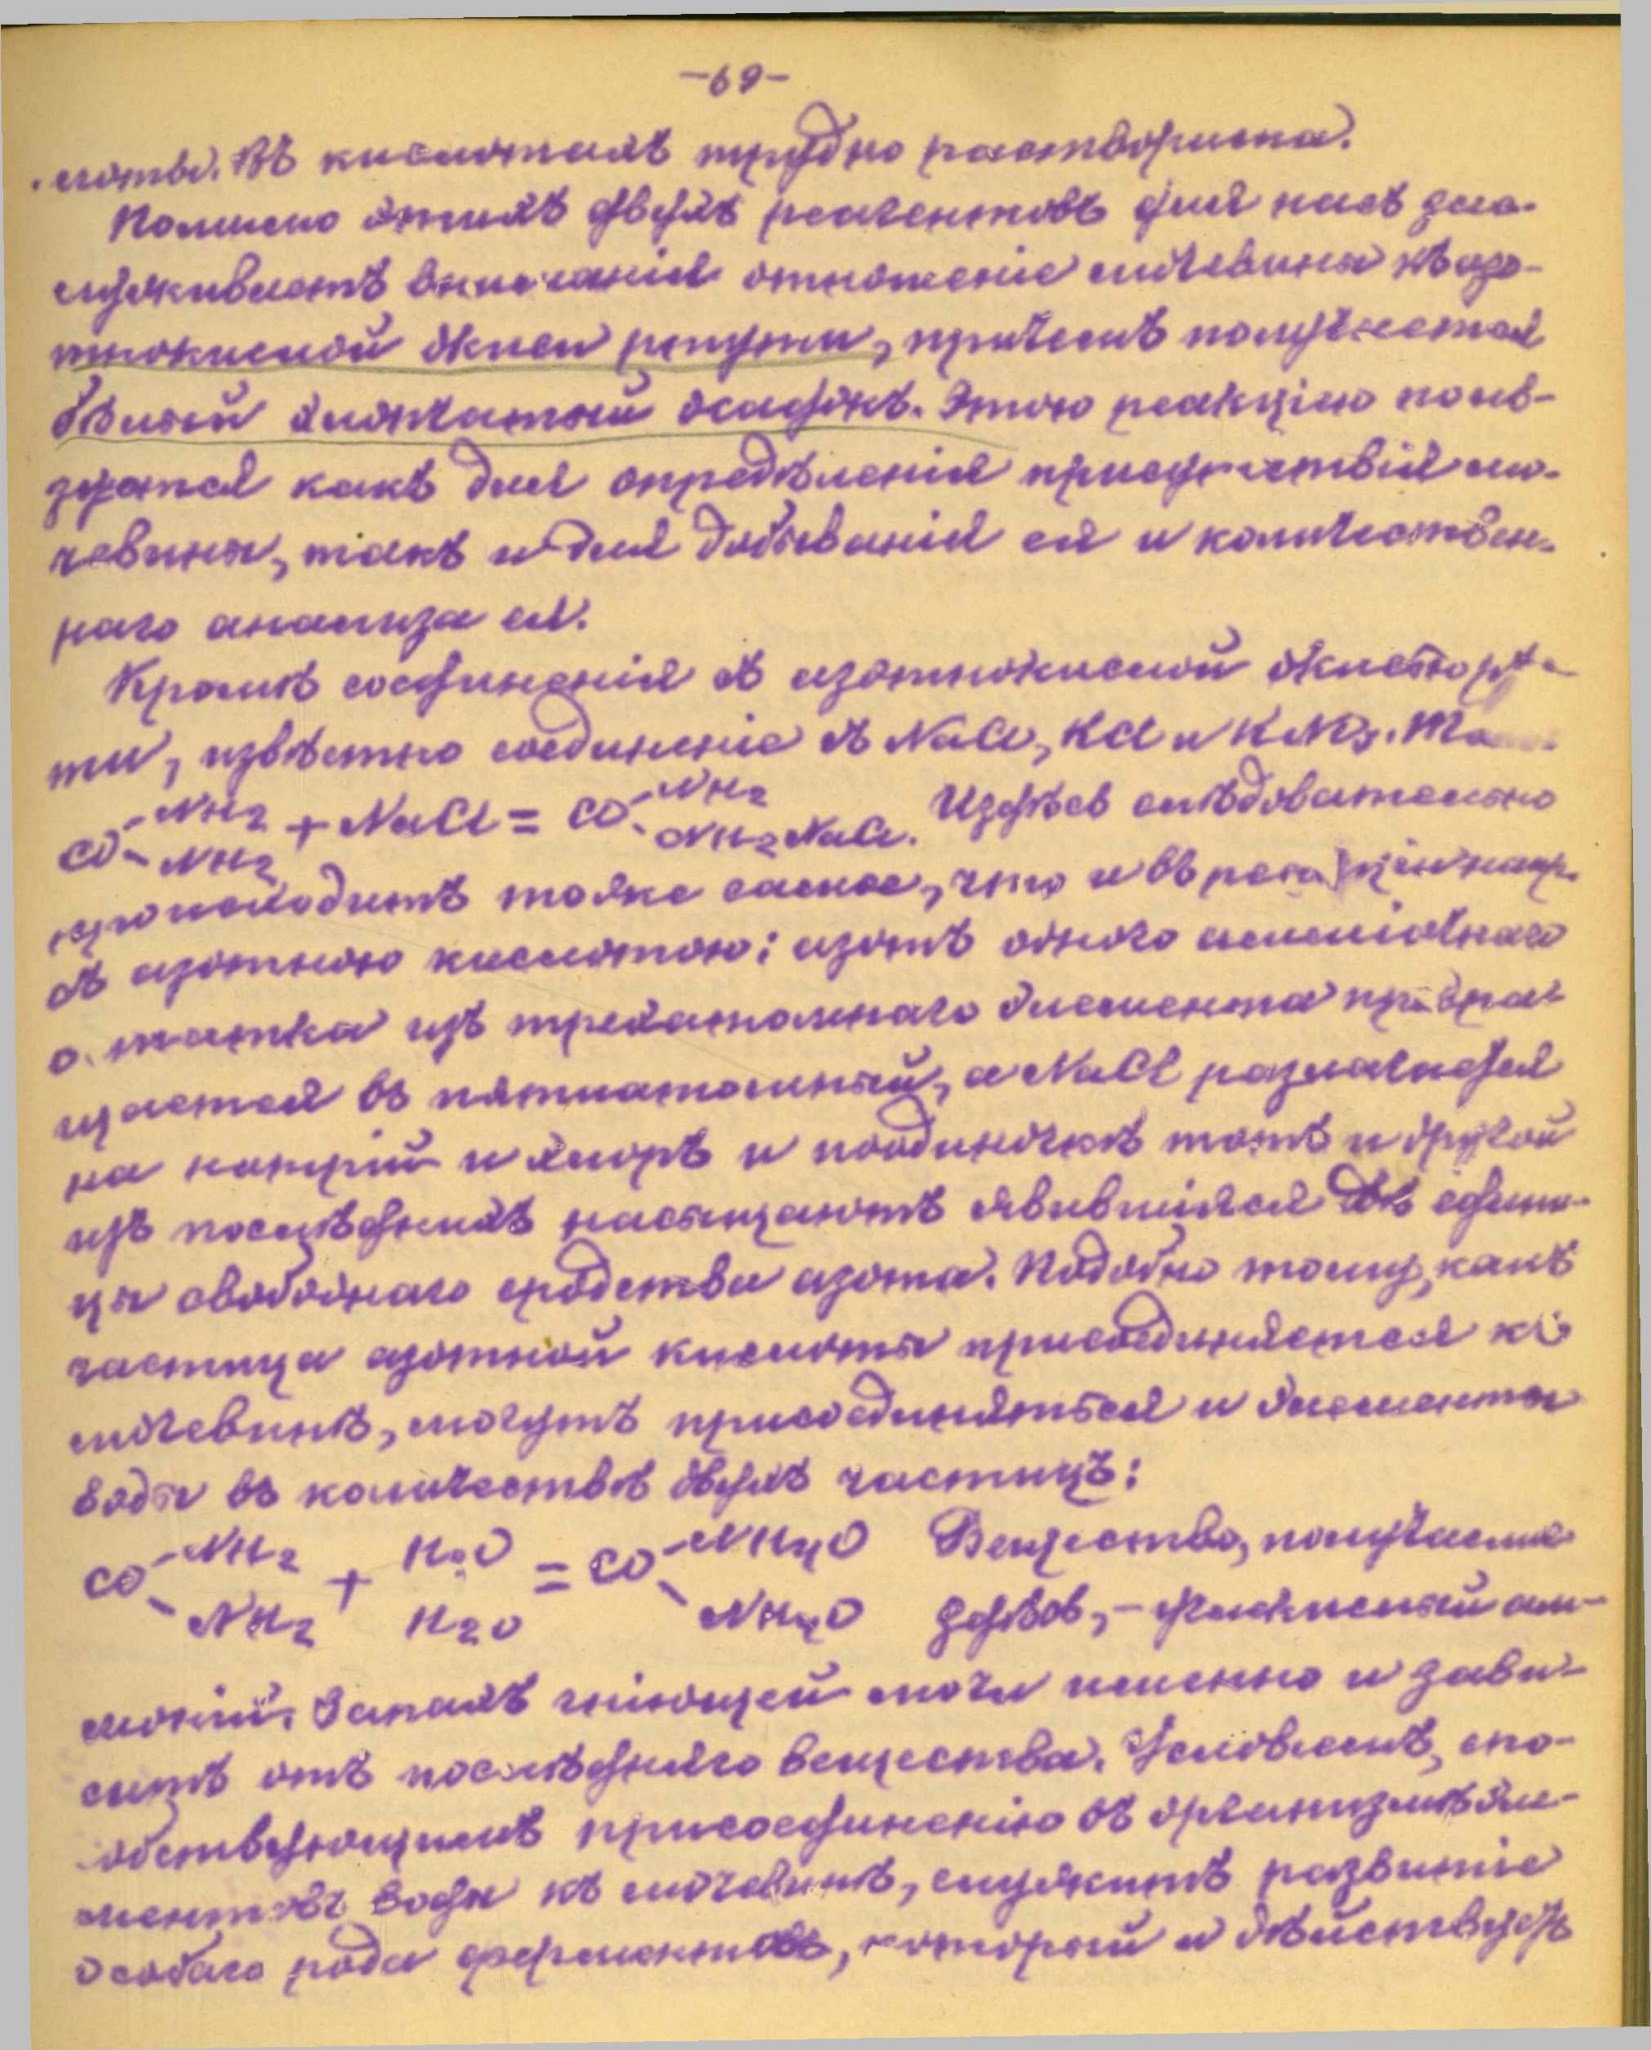 -69-
лоты. Въ кислотахъ трудно растворима.
Помимо этихъ двухъ реагентовъ для насъ зас-
луживаетъ вниманія отношеніе мочевины къ азо-
тнокислой окиси ртути, причемъ получается
бѣлый хлопчатый осадокъ. Этою реакціею поль-
зуются какъ для опредѣленія присутствія мо-
чевины, такъ и для добыванія ея и количествен-
наго анализа ея.
Кромѣ соединенія съ азотнокислой окисью рту-
ти, извѣстно соединеніе съ NaCl, KCl и KNO₃.
CO-NH₂-NH₂ + NaCl = CO-NH₂-NH₂NaCl. И здѣсь слѣдовательно
происходитъ тоже самое, что и въ реакціи напр.
съ азотною кислотою: азотъ одного амміачнаго
остатка изъ трехатомнаго элемента превра-
щается въ пятиатомный, а NaCl разлагается
на натрій и хлоръ и поодиночкѣ тотъ и другой
изъ послѣднихъ насыщаютъ явившіяся двѣ едини-
цы свободнаго сродства азота. Подобно тому, какъ
частица азотной кислоты присоединяется къ
мочевинѣ, могутъ присоединяться и элементы
воды въ количествѣ двухъ частицъ:
CO-NH₂-NH₂ + H₂O H₂O = CO-NH₄O-NH₄O Вещество, получаемое
здѣсь, - углекислый ам-
моній. Запахъ гніющей мочи именно и зави-
ситъ отъ послѣдняго вещества. Условіемъ, спо-
собствующимъ присоединенію въ организмѣ эле-
ментовъ воды къ мочевинѣ, служитъ развитіе
особаго рода ферментовъ, который и дѣйствуетъ